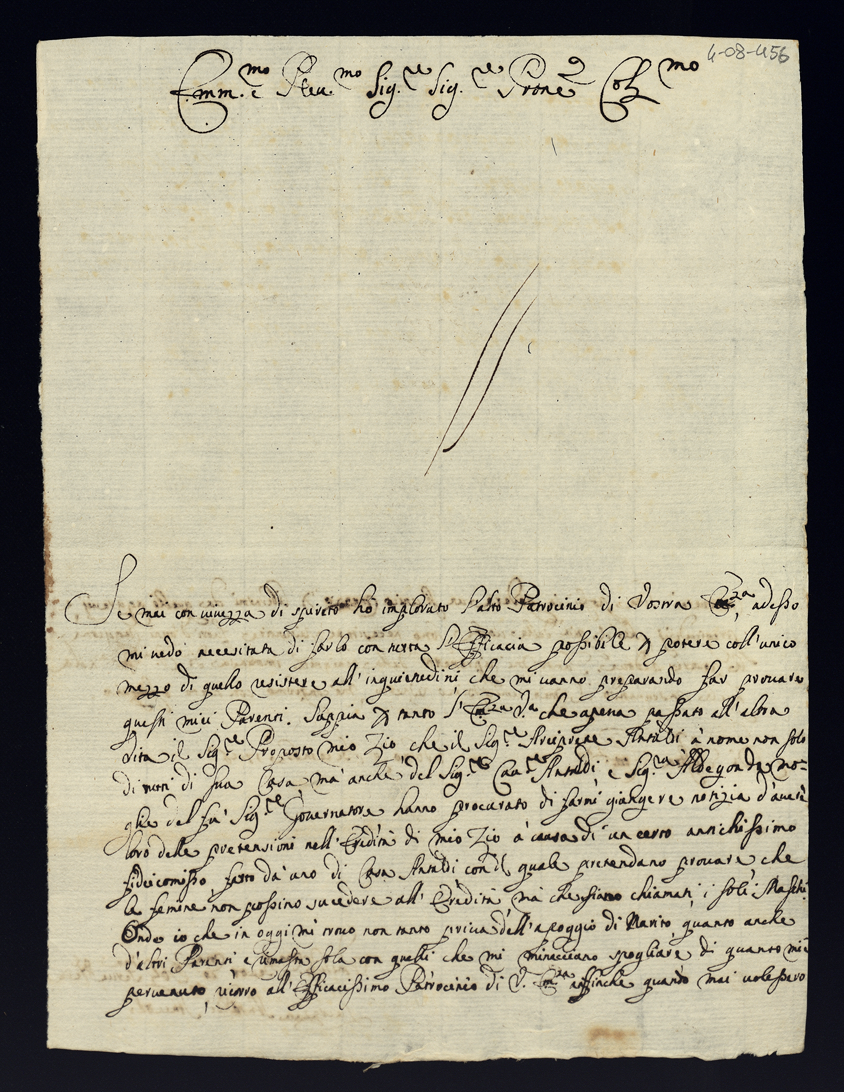 4-08-456
Em.mo e Rev.mo Sig.re Sig.re Prone Col.mo
Se mai con vivezza di spirito ho implorato l'alto Patrocinio di Vostra Em.za, adesso
mi vedo necesitata di farlo con tutta l'Efficacia possibile p potere coll'unico
mezzo di quello resistere all'inquietedini che mi vanno preparando far provare
questi miei Parenti. Sappia p tanto l'Em.za V.a che apena passato all'altra
Vita il Sig.re Proposto mio Zio che il Sig.re Arciprete Antaldi à nome non solo
di tutti di sua Casa, mà anche del Sig.re Cav.re Antaldi e Sig.ra Aldegonda mo=
glie del fù Sig.re Governatore hanno procurato di farmi giungere notizia d'avere
loro delle pretensioni nell'Eredità di mio Zio à causa di un certo antichissimo
fideicomisso fatto dà uno di Casa Antaldi con il quale pretendano provare che
le femine non possino sucedere all'Eredità mà che siano chiamati i soli Maschi.
Onde io che in oggi mi trovo non tanto priva dell'apoggio di Marito, quanto anche
d'altri Parenti e rimasta sola con quelli che mi minacciano spogliare di quanto mi è
pervenuto, ricorro all'Efficacissimo Patrocinio di V. Em.za affinche quando mai volessero